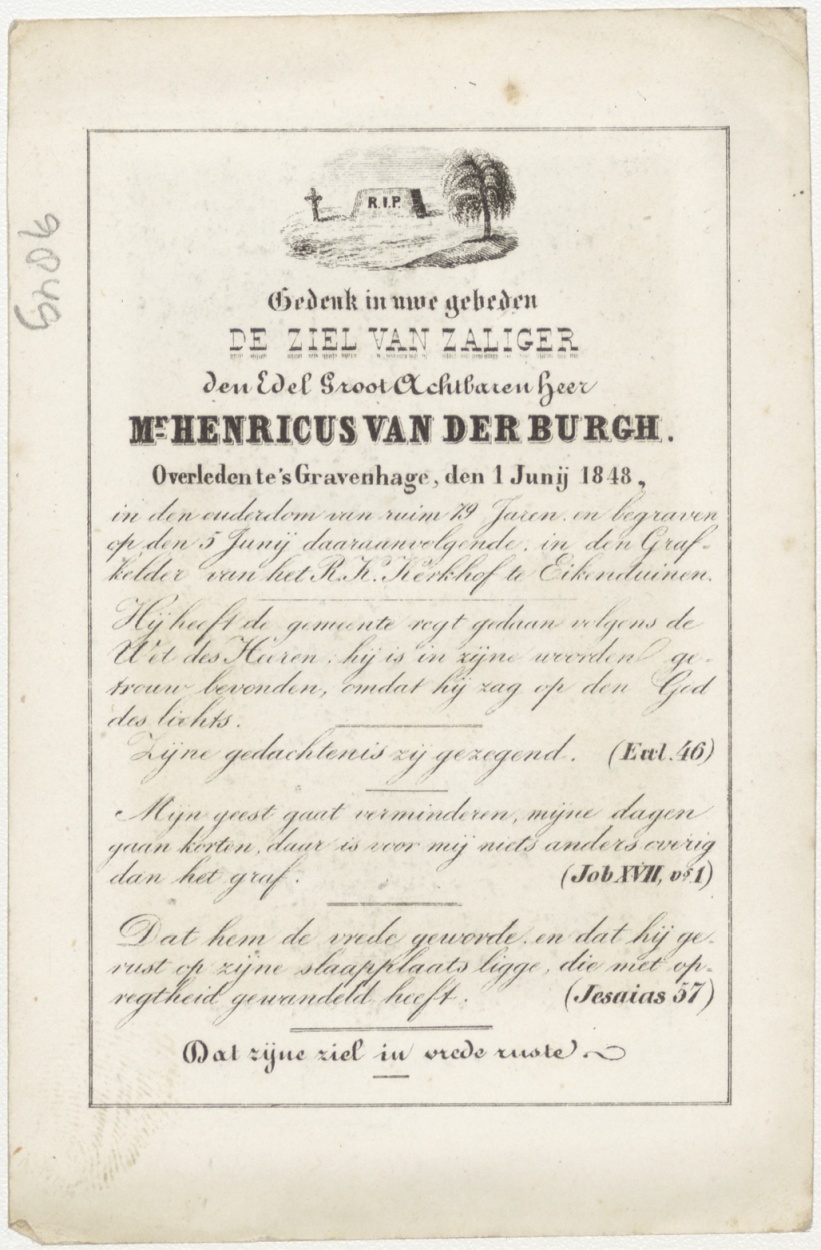 R.I.P.
Gedenk in uwe gebeden
DE ZIEL VAN ZALIGER
den Edel Groot Achtbaren Heer
Mr. HENRICUS VAN DER BURGH.
Overleden te 's Gravenhage, den 1 Junij 1848,
in den ouderdom van ruim 79 Jaren. en begraven
op den 5 Junij daaraanvolgende. in den Graf-
kelder van het R. K. Kerkhof te Eikenduinen.
Hij heeft de gemeente regt gedaan volgens de
Wet des Heeren: hij is in zijne woorden ge-
trouw bevonden, omdat hij zag op den God
des lichts.
Zijne gedachtenis zij gezegend. (Eccl. 46)
Mijn geest gaat verminderen, mijne dagen
gaan korten, daar is voor mij niets anders overig
dan het graf. (Job XVII, vs. 1)
Dat hem de vrede geworde. en dat hij ge-
rust op zijne slaapplaats ligge, die met op-
regtheid gewandeld heeft. (Jesaias 57)
Dat zijne ziel in vrede ruste